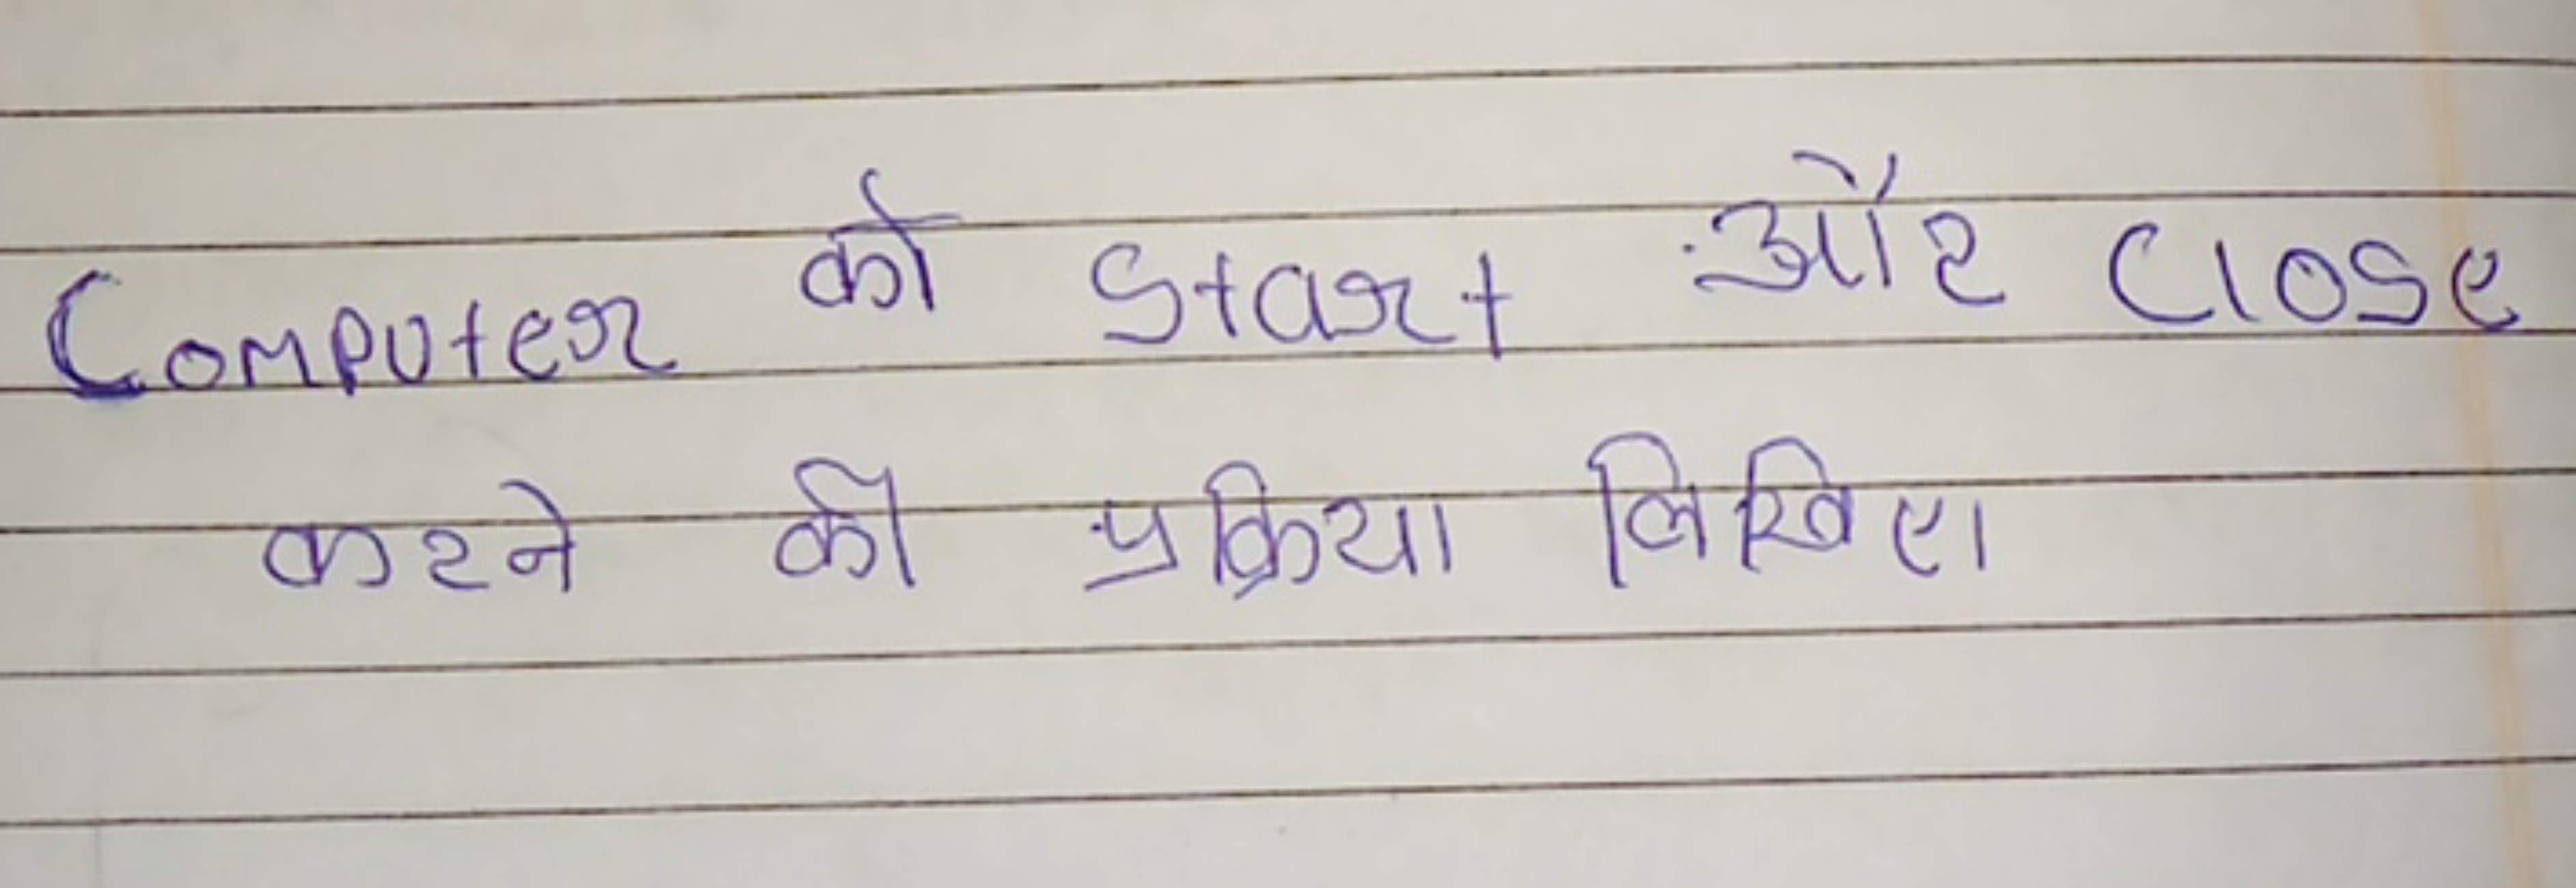 Computer को Start और Close
करने की प्रक्रिया लिखिए।